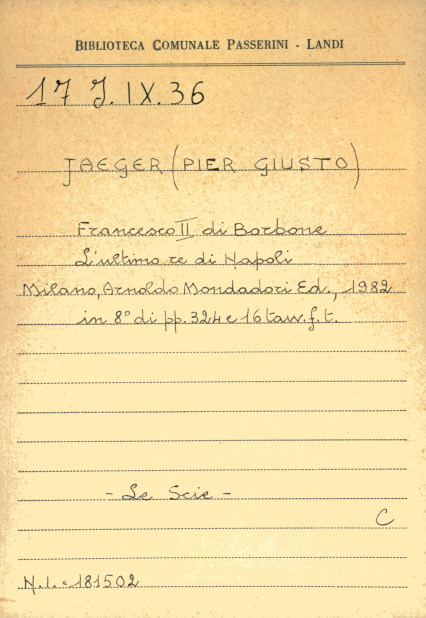 BIBLIOTECA COMUNALE PASSERINI - LANDI
17 J.IX.36
JAEGER (PIER GIUSTO)
Francesco II di Borbone
L'ultimo re di Napoli
Milano, Arnoldo Mondadori Ed., 1982
in 8° di pp. 324 e 16 tavv. f. t.
- Le Scie -
C
N.I. = 181502